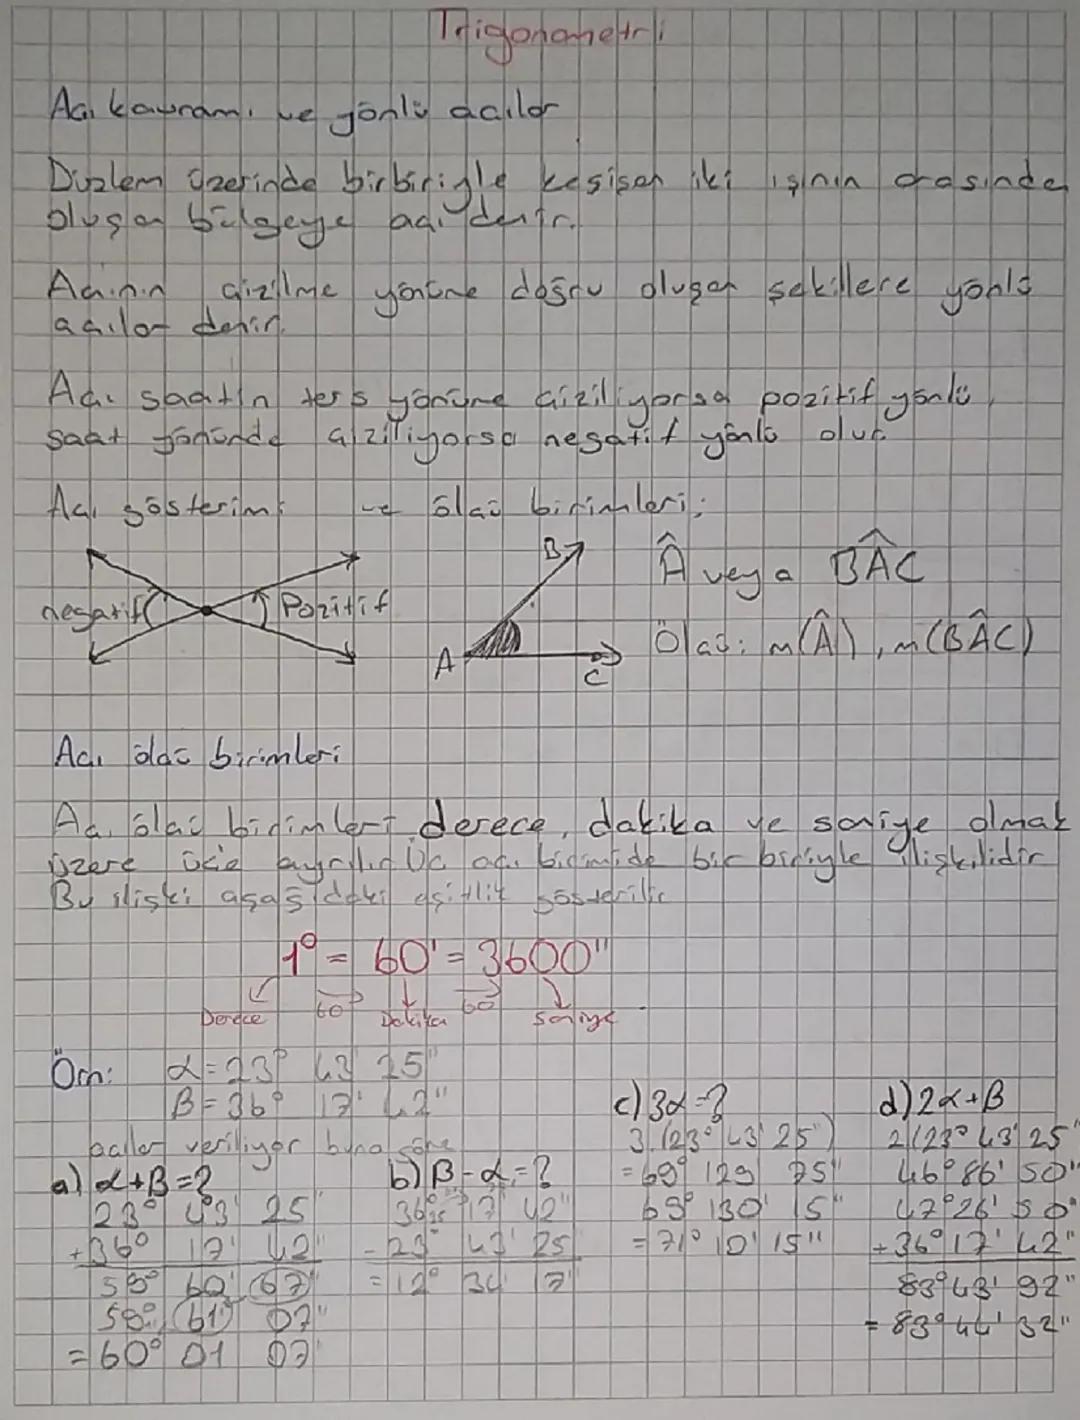 Trigonometri
Açı kavramı ve yönlü açılar
Düzlem üzerinde birbiriyle kesişen iki ışının arasında
oluşan bölgeye açı denir.
Açının çizilme yönüne doğru oluşan şekillere yönlü
açılar denir.
Açı saatin ters yönüne çiziliyorsa pozitif yönlü,
saat yönünde çiziliyorsa negatif yönlü olur
Açı gösterimi ve ölçü birimleri;
negatif Pozitif
A B C
Â veya BÂC
Ölçü: m(Â), m(BÂC)
Açı ölçü birimleri
Açı ölçü birimleri derece, dakika ve saniye olmak
üzere üç'e ayrılır. Üç açı birimide bir biriyle ilişkilidir
Bu ilişki aşağıdaki eşitlik gösterilir
1° = 60' = 3600"
60 60
Derece Dakika Saniye
Örn: α = 23° 43' 25"
β = 36° 17' 42"
açıları veriliyor buna göre
a) α+β=?
23° 43' 25"
+36° 17' 42"
59° 60' 67"
59° 61' 07"
= 60° 01 07
b) β-α=?
36° 17' 42"
- 23° 43' 25
= 12° 34' 17
c) 3α=?
3.(23° 43' 25")
= 69° 129' 75"
69° 130' 15"
= 71° 10' 15"
d) 2α+β
2(23° 43' 25"
46° 86' 50"
47° 26' 50"
+36° 17' 42"
83° 43' 92"
= 83° 44' 32"